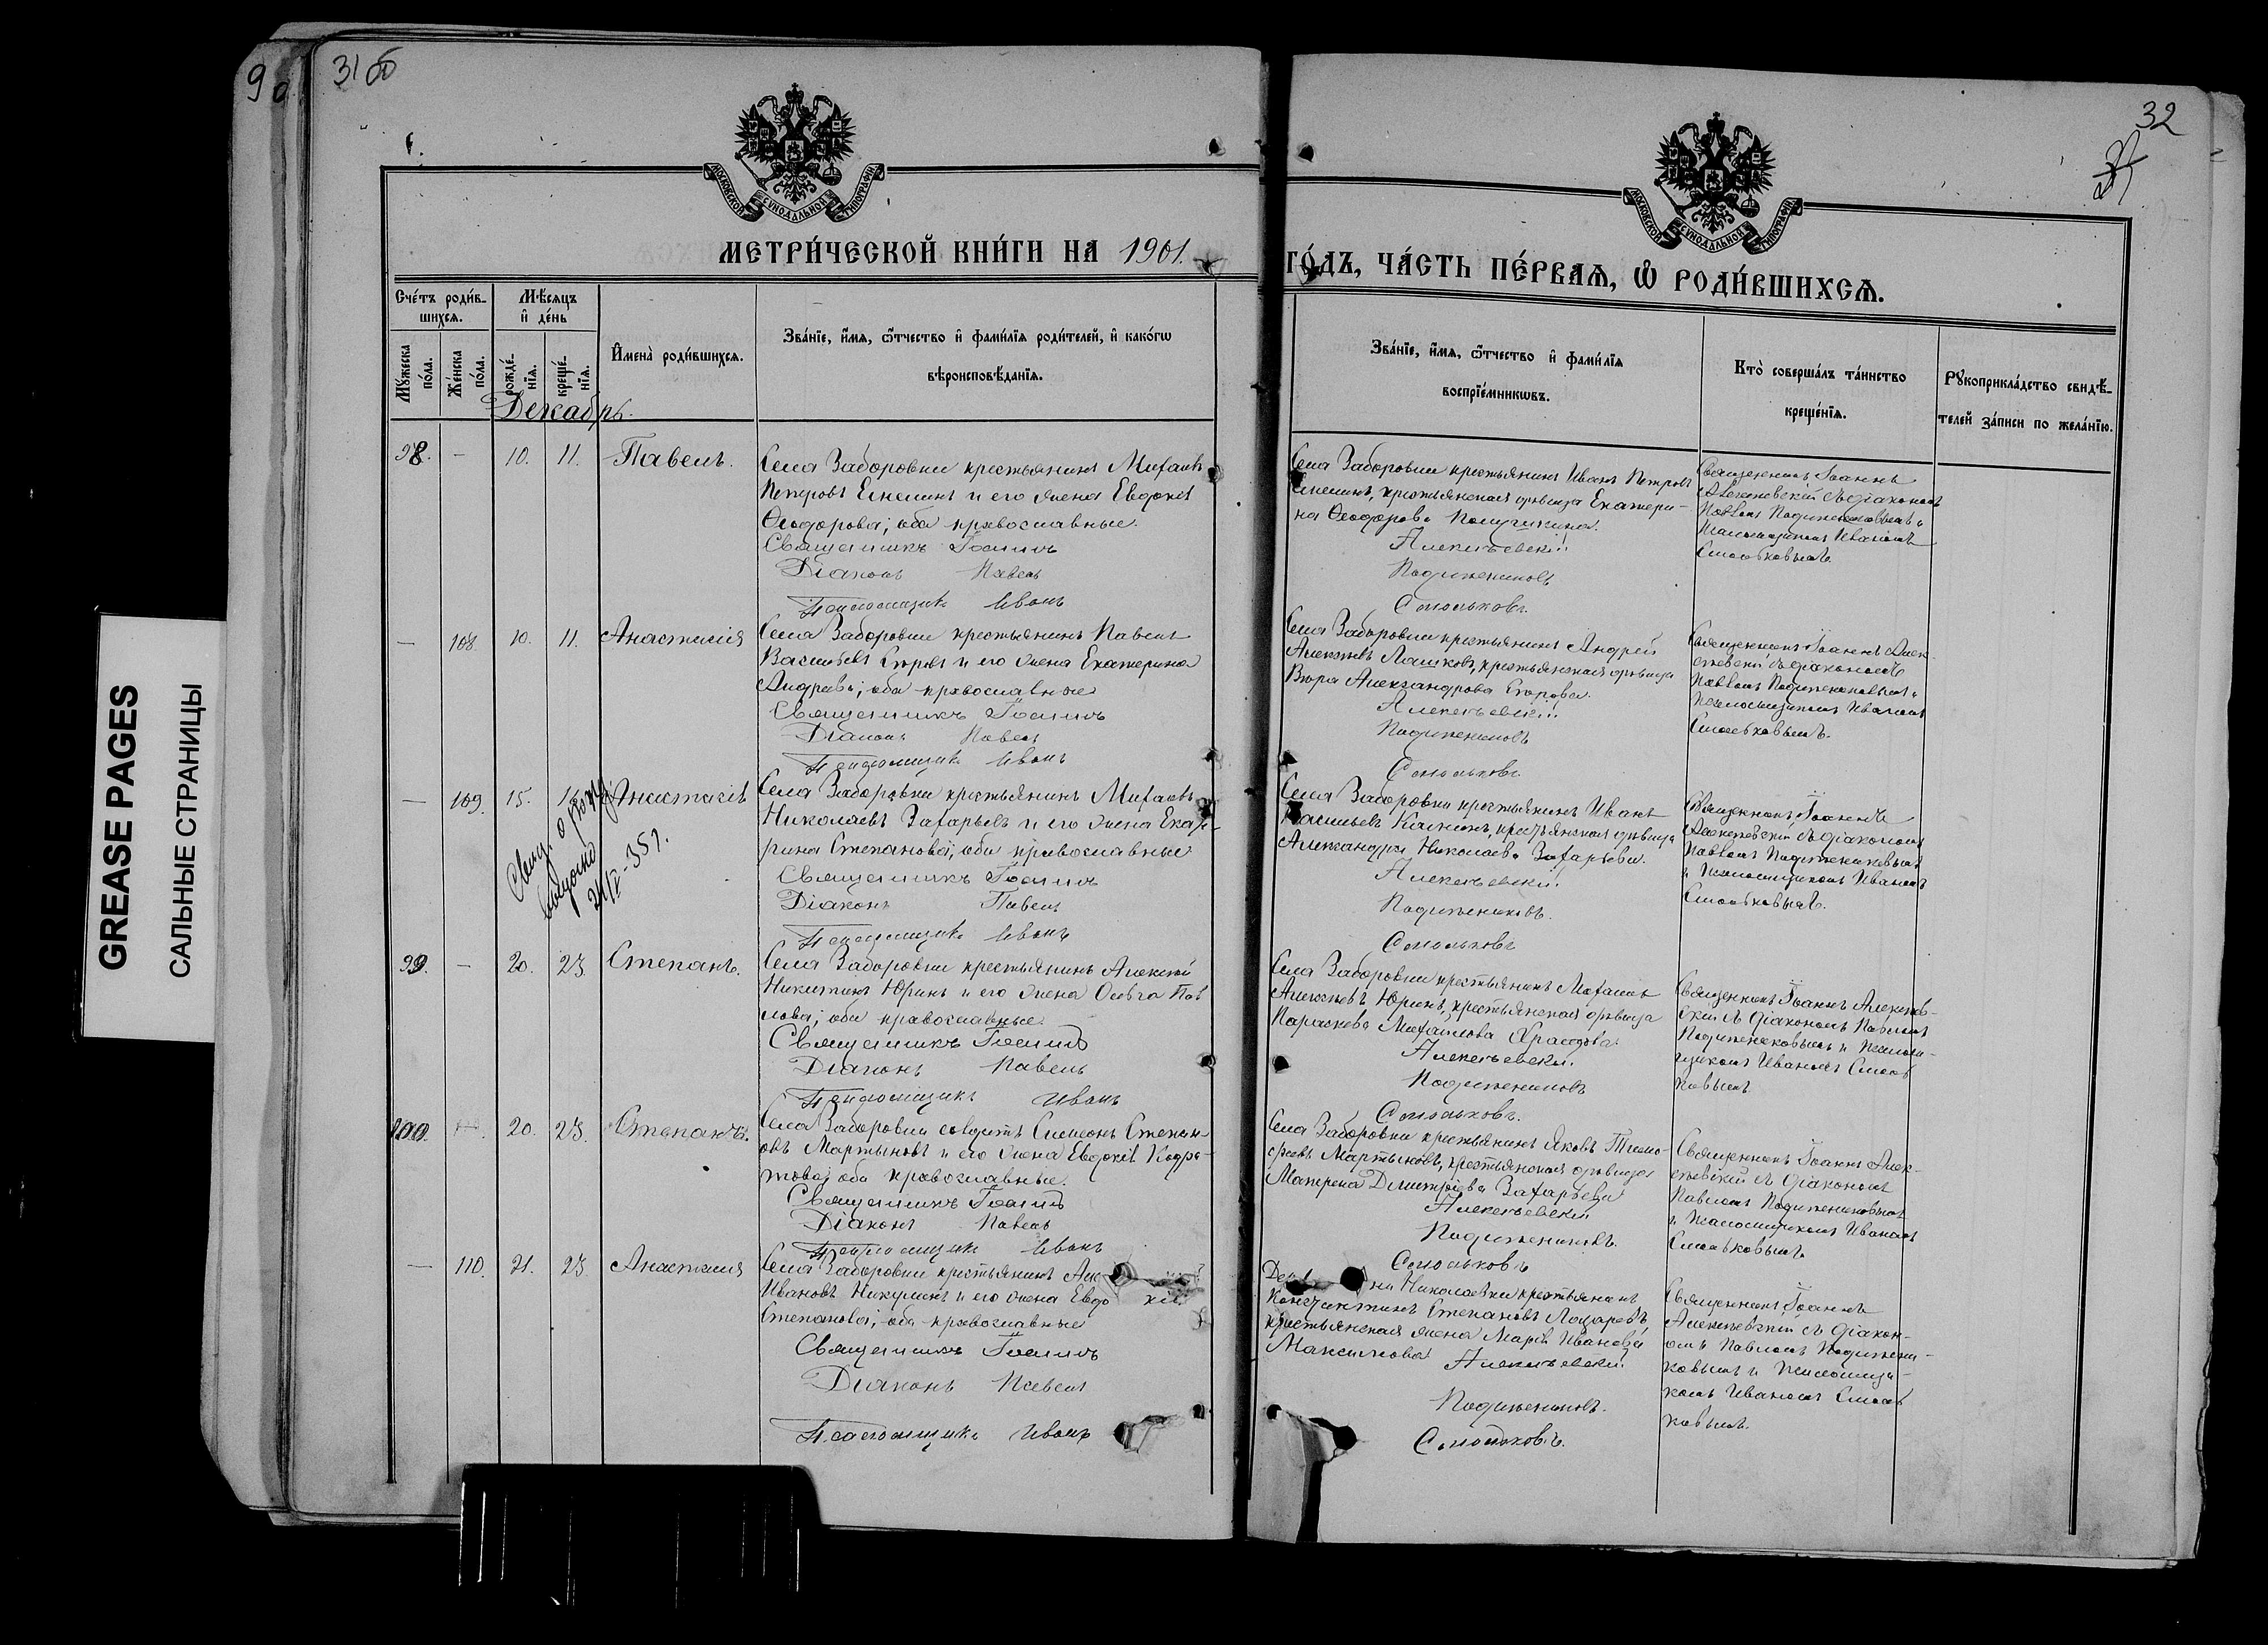 9 о
31 об
32
МОСКОВСКОЙ СѴНОДАЛЬНОЙ ТИПОГРАФІИ
МОСКОВСКОЙ СѴНОДАЛЬНОЙ ТИПОГРАФІИ
МЕТРИ́ЧЕСКОЙ КНИ́ГИ НА 1901.
ГО́ДЪ, ЧА́СТЬ ПЕ́РВАѦ, Ѡ҆ РОДИ́ВШИХСѦ.
Сче́тъ роди́в-
шихсѧ.
Мꙋ́жеска по́ла.
Же́нска по́ла.
Мѣ́сѧцъ
и҆ де́нь
рожде́-
нїѧ.
креще́-
нїѧ.
И҆мена̀ роди́вшихсѧ.
Зва́нїе, и҆́мѧ, ѻ҆́тчество и҆ фами́лїѧ роди́телей, и҆ како́гѡ
вѣроисповѣ́данїѧ.
Зва́нїе, и҆́мѧ, ѻ҆́тчество и҆ фами́лїѧ
воспрїе́мникѡвъ.
Кто̀ соверша́лъ та́инство
креще́нїѧ.
Рꙋкоприкла́дство свидѣ́-
телей за́писи по жела́нїю.
Декабрь.
98. — 10. 11. Павелъ.
Села Заборовки крестьянинъ Михаилъ
Петровъ Е и его жена Евдокія
Ѳеодорова; оба православные.
Священникъ Іоаннъ
Діаконъ Павелъ
Псаломщикъ Иванъ
Села Заборовки крестьянинъ Иванъ Петровъ
крестьянская дѣвица Екатери-
на Ѳеодорова
Алексѣевскій
Подижениковъ
Смольковъ.
Священникъ Іоаннъ
Алексѣевскій съ діакономъ
Павломъ Подижениковымъ и
Псаломщикомъ Иваномъ
Смольковымъ.
— 108. 10. 11. Анастасія
Села Заборовки крестьянинъ Павелъ
Васильевъ Егоровъ и его жена Екатерина
оба православные
Священникъ Іоаннъ
Діаконъ Павелъ
Псаломщикъ Иванъ
Села Заборовки крестьянинъ Андрей
Алексѣевъ Лашковъ, крестьянская дѣвица
Вѣра Александрова Егорова.
Алексѣевскій
Подижениковъ
Смольковъ.
Священникъ Іоаннъ Алек-
сѣевскій съ діакономъ
Павломъ Подижениковымъ и
Псаломщикомъ Иваномъ
Смольковымъ.
— 109. 15. Анастасія
Свид. о рожд.
выдано
35 г.
Села Заборовки крестьянинъ Михаилъ
Николаевъ Захарьевъ и его жена Екате-
рина Степанова; оба православные
Священникъ Іоаннъ
Діаконъ Павелъ
Псаломщикъ Иванъ
Села Заборовки крестьянинъ Иванъ
Васильевъ крестьянская дѣвица
Александра Николаева Захарьева.
Алексѣевскій
Подижениковъ.
Смольковъ
Священникъ Іоаннъ
Алексѣевскій съ діакономъ
Павломъ Подижениковымъ
и Псаломщикомъ Иваномъ
Смольковымъ.
99. — 20. 23. Степанъ.
Села Заборовки крестьянинъ Алексѣй
Никитинъ Юринъ и его жена Ольга Пав
лова; оба православные.
Священникъ Іоаннъ
Діаконъ Павелъ
Псаломщикъ Иванъ
Села Заборовки крестьянинъ Михаилъ
Алексѣевъ Юринъ, крестьянская дѣвица
Параскева Михайлова
Алексѣевскій
Подижениковъ
Смольковъ.
Священникъ Іоаннъ Алексѣев-
скій съ діакономъ Павломъ
Подижениковымъ и Псалом-
щикомъ Иваномъ Смоль
ковымъ
100. 20. 23. Степанъ.
Села Заборовки солдатъ Симеонъ Степан-
овъ Мартыновъ и его жена Евдокія Кодра-
това; оба православные.
Священникъ Іоаннъ
Діаконъ Павелъ
Псаломщикъ Иванъ
Села Заборовки крестьянинъ Яковъ Тимо-
феевъ Мартыновъ, крестьянская дѣвица
Матрена Димитріева Захарьева
Алексѣевскій
Подижениковъ.
Смольковъ
Священникъ Іоаннъ Алек-
сѣевскій съ діакономъ
Павломъ Подижениковымъ
и Псаломщикомъ Иваномъ
Смольковымъ
— 110. 21. 23. Анастасія
Села Заборовки крестьянинъ
Ивановъ Никулинъ и его жена Евдо кія
Степанова; оба православные
Священникъ Іоаннъ
Діаконъ Павелъ
Псаломщикъ Иванъ
Николаевки крестьянинъ
Константинъ Степановъ Лазаревъ,
крестьянская жена Марія Иванова
Максимова Алексѣевскій
Подижениковъ.
Смольковъ.
Священникъ Іоаннъ
Алексѣевскій съ діакон-
омъ Павломъ Подижени-
ковымъ и Псаломщи-
комъ Иваномъ Смоль
ковымъ.
GREASE PAGES
САЛЬНЫЕ СТРАНИЦЫ